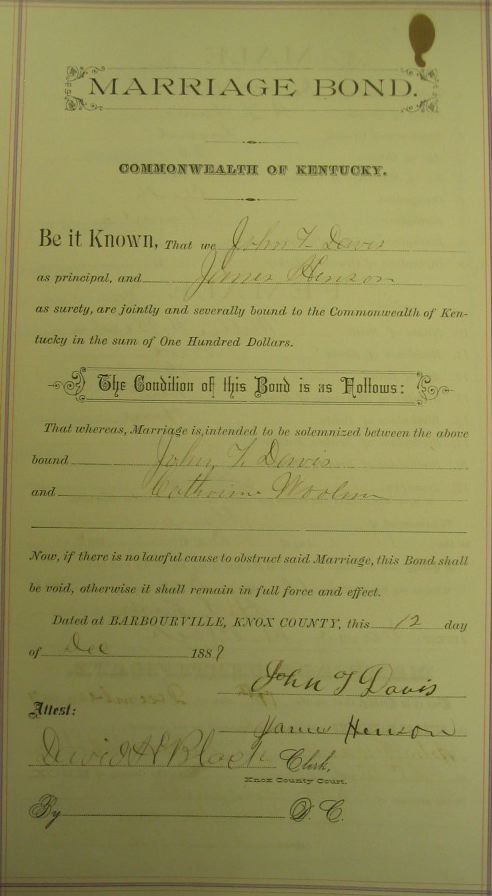 MARRIAGE BOND.
COMMONWEALTH OF KENTUCKY.
Be it Known, That we John T Davis
as principal, and James Henson
as surety, are jointly and severally bound to the Commonwealth of Ken-
tucky in the sum of One Hundred Dollars.
The Condition of this Bond is as Follows:
That whereas, Marriage is intended to be solemnized between the above
bound John T. Davis
and Catherine
Now, if there is no lawful cause to obstruct said Marriage, this Bond shall
be void, otherwise it shall remain in full force and effect.
Dated at BARBOURVILLE, KNOX COUNTY, this 12 day
of Dec 188
John T Davis
Attest:
James Henson
David H Black Clerk,
Knox County Court.
By D. C.